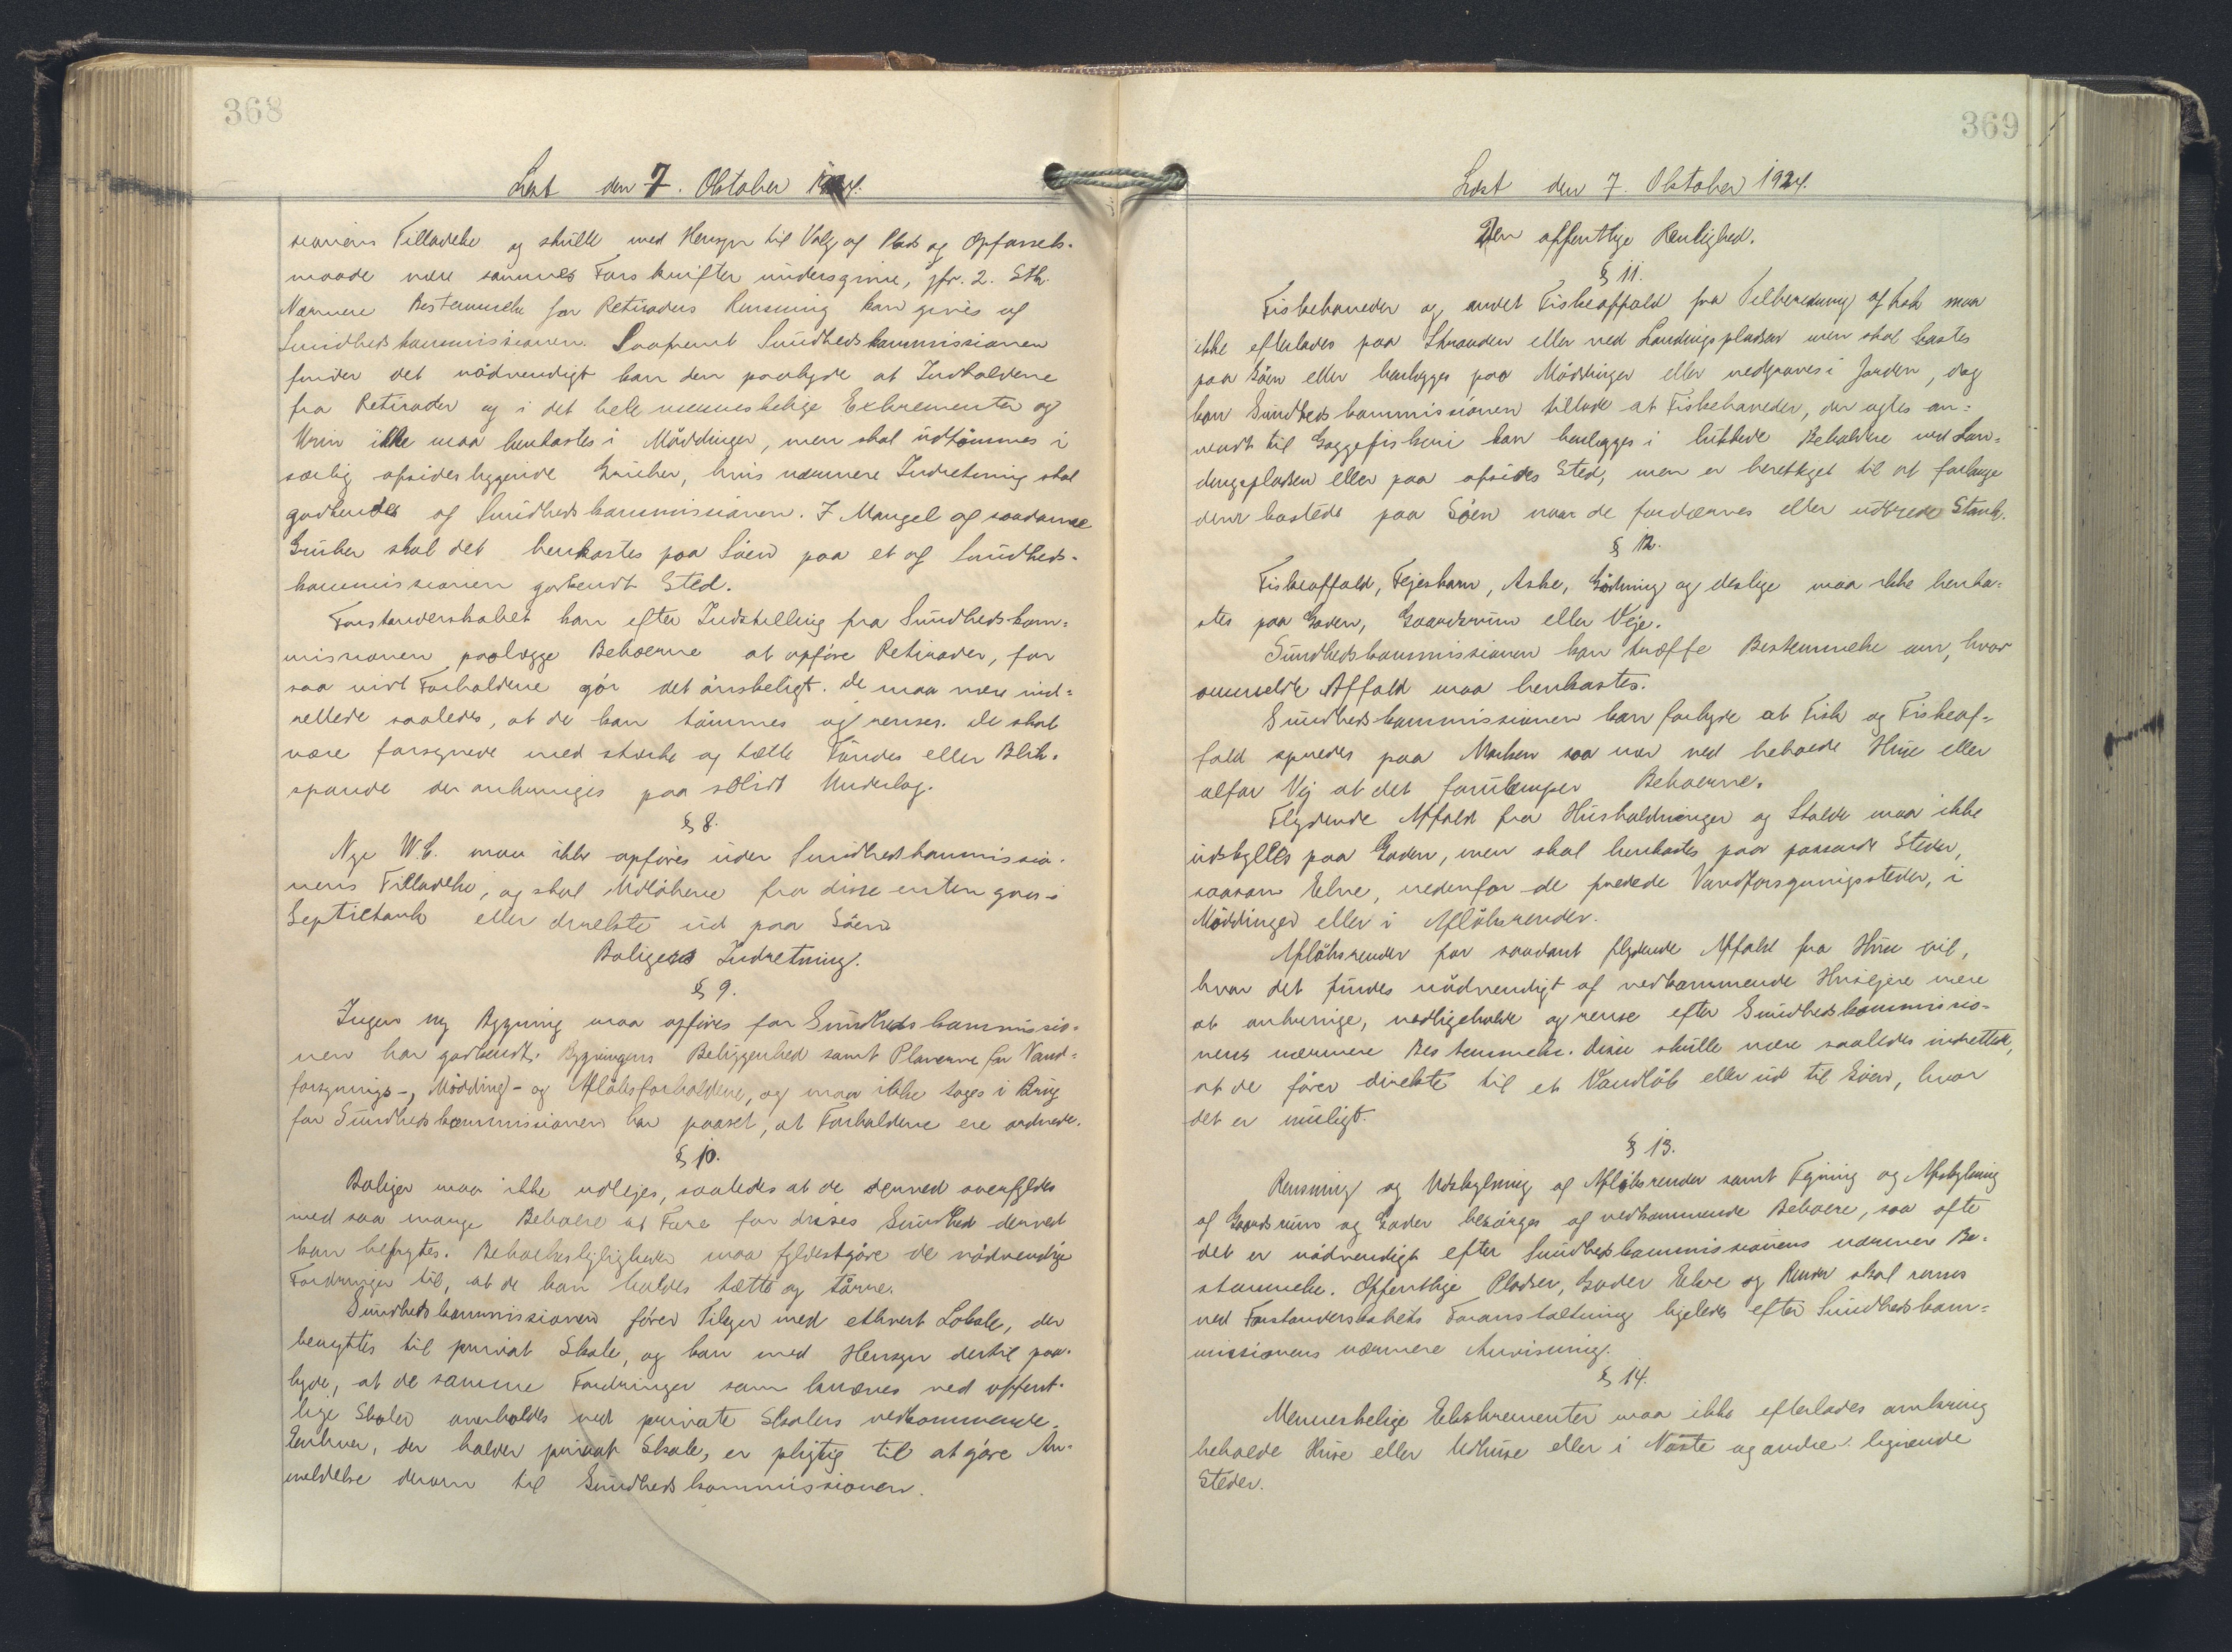 368
Læst den 7. Oktober 1924.
sionens Tilladelse og skulle med Hensyn til Valg af Plads og Opførsels-
maade være sammes Forskrifter undergivne, jfr. 2. Stk.
Nærmere Bestemmelse for Retiraders Rensning kan gives af
Sundhedskommissionen. Saafremt Sundhedskommissionen
finder det nödvendigt kan den paabyde at Indholdene
fra Retirader og i det hele menneskelige Exkrementer og
Urin ikke maa henkastes i Möddinger, men skal udtömmes i
særlig afsides liggende Gruber, hvis nærmere Indretning skal
godkendes af Sundhedskommissionen. I Mangel af saadanne
Gruber skal det henkastes paa Söen paa et af Sundheds-
kommissionen godkendt Sted.
Forstanderskabet kan efter Indstilling fra Sundhedskom=
missionen paalægge Beboerne at opföre Retirader, for
saa vidt Forholdene gör det önskeligt. De maa være ind=
rettede saaledes, at de kan tömmes og renses. De skal
være forsynede med stærke og tætte Tönder eller Blik-
spande der anbringes paa solidt Underlag.
§ 8.
Nye W.C. maa ikke opföres uden Sundhedskommissio-
nens Tilladelse, og skal Udlöbene fra disse enten gaa i
Septictank eller direkte ud paa Söen
Boligers Indretning.
§ 9.
Ingen ny Bygning maa opföres för Sundhedskommissio-
nen har godkendt Bygningens Beliggenhed samt Planerne for Vand=
forsynings-, Mödding- og Aflöbsforholdene, og maa ikke tages i Brug
för Sundhedskommissionen har paaset, at Forholdene ere ordnede.
§ 10.
Boliger maa ikke udlejes, saaledes at de derved overfyldes
med saa mange Beboere at Fare for disses Sundhed derved
kan befrygtes. Beboelseslejligheder maa fyldestgöre de nödvendige
Fordringer til, at de kan holdes tætte og törre.
Sundhedskommissionen förer Tilsyn med ethvert Lokale, der
benyttes til privat Skole, og kan med Hensyn dertil paa-
byde, at de samme Fordringer som kræves ved offent-
lige Skoler overholdes ved private Skolers vedkommende.
Enhver, der holder privat Skole, er pligtig til at göre An-
meldelse derom til Sundhedskommissionen.
369
Læst den 7. Oktober 1924.
Den offentlige Renlighed.
§ 11.
Fiskehoveder og andet Fiskeaffald fra Tilberedning af Fisk maa
ikke efterlades paa Stranden eller ved Landingspladser men skal kastes
paa Söen eller henlægges paa Möddinger eller nedgraves i Jorden, dog
kan Sundhedskommissionen tillade at Fiskehoveder, der agtes an=
vendt til Gaggefiskeri kan henlægges i lukkede Beholdere ved Lan=
dingspladsen eller paa afsides Sted, men er berettiget til at forlange
dem kastede paa Söen naar de fordærves eller udbreder Stank.
§ 12.
Fiskeaffald, Fejeskarn, Aske, Gödning og deslige maa ikke henka=
stes paa Gaden, Gaardsrum eller Veje.
Sundhedskommissionen kan træffe Bestemmelse om, hvor
ommeldte Affald maa henkastes.
Sundhedskommissionen kan forbyde at Fisk og Fiskeaf-
fald spredes paa Marken saa nær ved beboede Huse eller
alfar Vej at det forulemper Beboerne.
Flydende Affald fra Husholdninger og Stalde maa ikke
udskylles paa Gaden, men skal henkastes paa passende Steder,
saasom Elve, nedenfor de fredede Vandforsyningssteder, i
Möddinger eller i Aflöbsrender.
Aflöbsrender for saadant flydende Affald fra Huse vil,
hvor det findes nödvendigt af vedkommende Husejere være
at anbringe, vedligeholde og rense efter Sundhedskommissio-
nens nærmere Bestemmelse. Disse skulle være saaledes indrettede,
at de förer direkte til et Vandlöb eller ud til Söen, hvor
det er muligt.
§ 13.
Rensning og Udskylning af Aflöbsrender samt Fejning og Afskylning
af Gaardsrum og Gader besörges af vedkommende Beboere, saa ofte
det er nödvendigt efter Sundhedskommissionens nærmere Be-
stemmelse. Offentlige Pladser, Gader Elve og Render skal renses
ved Forstanderskabets Foranstaltning ligeledes efter Sundhedskom=
missionens nærmere Anvisning.
§ 14.
Menneskelige Ekskrementer maa ikke efterlades omkring
beboede Huse eller Udhuse eller i Nöste og andre lignende
Steder.